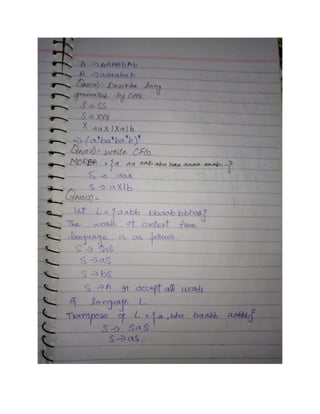 A → AAAAbAb
A → aaaabab
Describe lang
generated by CFG
S → SS
S → XXX
X → aX | Xa | b
⇒ (a*ba*ba*b)*
write CFG
= {a aa aab aba baa aaaa aaab ...}
S → aaX
S → aX|b
Let L = {aabb bbaab bbbaa}
The words of context free
language is as follows
S → SaS
S → aS
S → bS
S → Λ It accept all words
of language L.
Transpose of L = {a, bba baabb aabbb}
S → SaS
S → aS